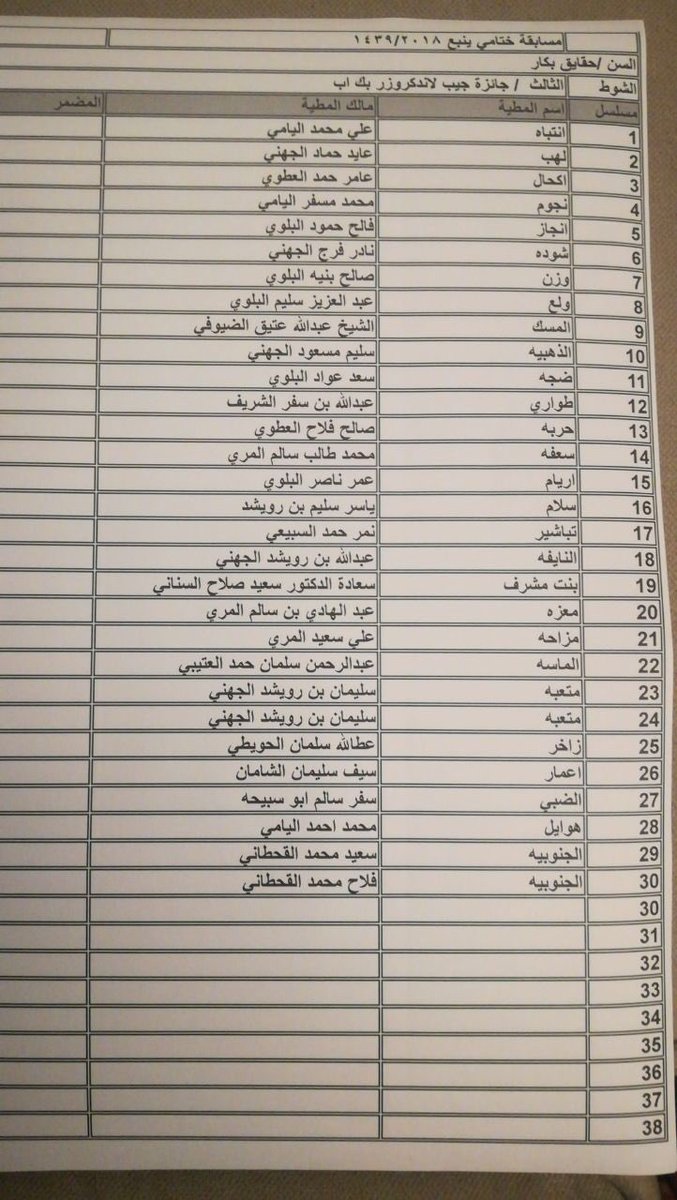 مسابقة ختامي ينبع ١٤٣٩/٢٠١٨
السن /حقايق بكار
الشوط الثالث / جائزة جيب لاندكروزر بك اب
مسلسل اسم المطية مالك المطية المضمر
1 انتباه علي محمد اليامي
2 لهب عايد حماد الجهني
3 اكحال عامر حمد العطوي
4 نجوم محمد مسفر اليامي
5 انجاز فالح حمود البلوي
6 شوده نادر فرج الجهني
7 وزن صالح بنيه البلوي
8 ولع عبد العزيز سليم البلوي
9 المسك الشيخ عبدالله عتيق الضيوفي
10 الذهبيه سليم مسعود الجهني
11 ضجه سعد عواد البلوي
12 طواري عبدالله بن سفر الشريف
13 حربه صالح فلاح العطوي
14 سعفه محمد طالب سالم المري
15 اريام عمر ناصر البلوي
16 سلام ياسر سليم بن رويشد
17 تباشير نمر حمد السبيعي
18 النايفه عبدالله بن رويشد الجهني
19 بنت مشرف سعادة الدكتور سعيد صلاح السناني
20 معزه عبد الهادي بن سالم المري
21 مزاحه علي سعيد المري
22 الماسه عبدالرحمن سلمان حمد العتيبي
23 متعبه سليمان بن رويشد الجهني
24 متعبه سليمان بن رويشد الجهني
25 زاخر عطالله سلمان الحويطي
26 اعمار سيف سليمان الشامان
27 الضبي سفر سالم ابو سبيحه
28 هوايل محمد احمد اليامي
29 الجنوبيه سعيد محمد القحطاني
30 الجنوبيه فلاح محمد القحطاني
30
31
32
33
34
35
36
37
38